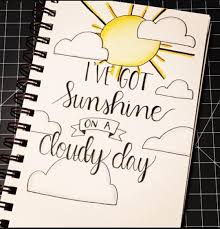 I'VE GOT
Sunshine
ON A
Cloudy day